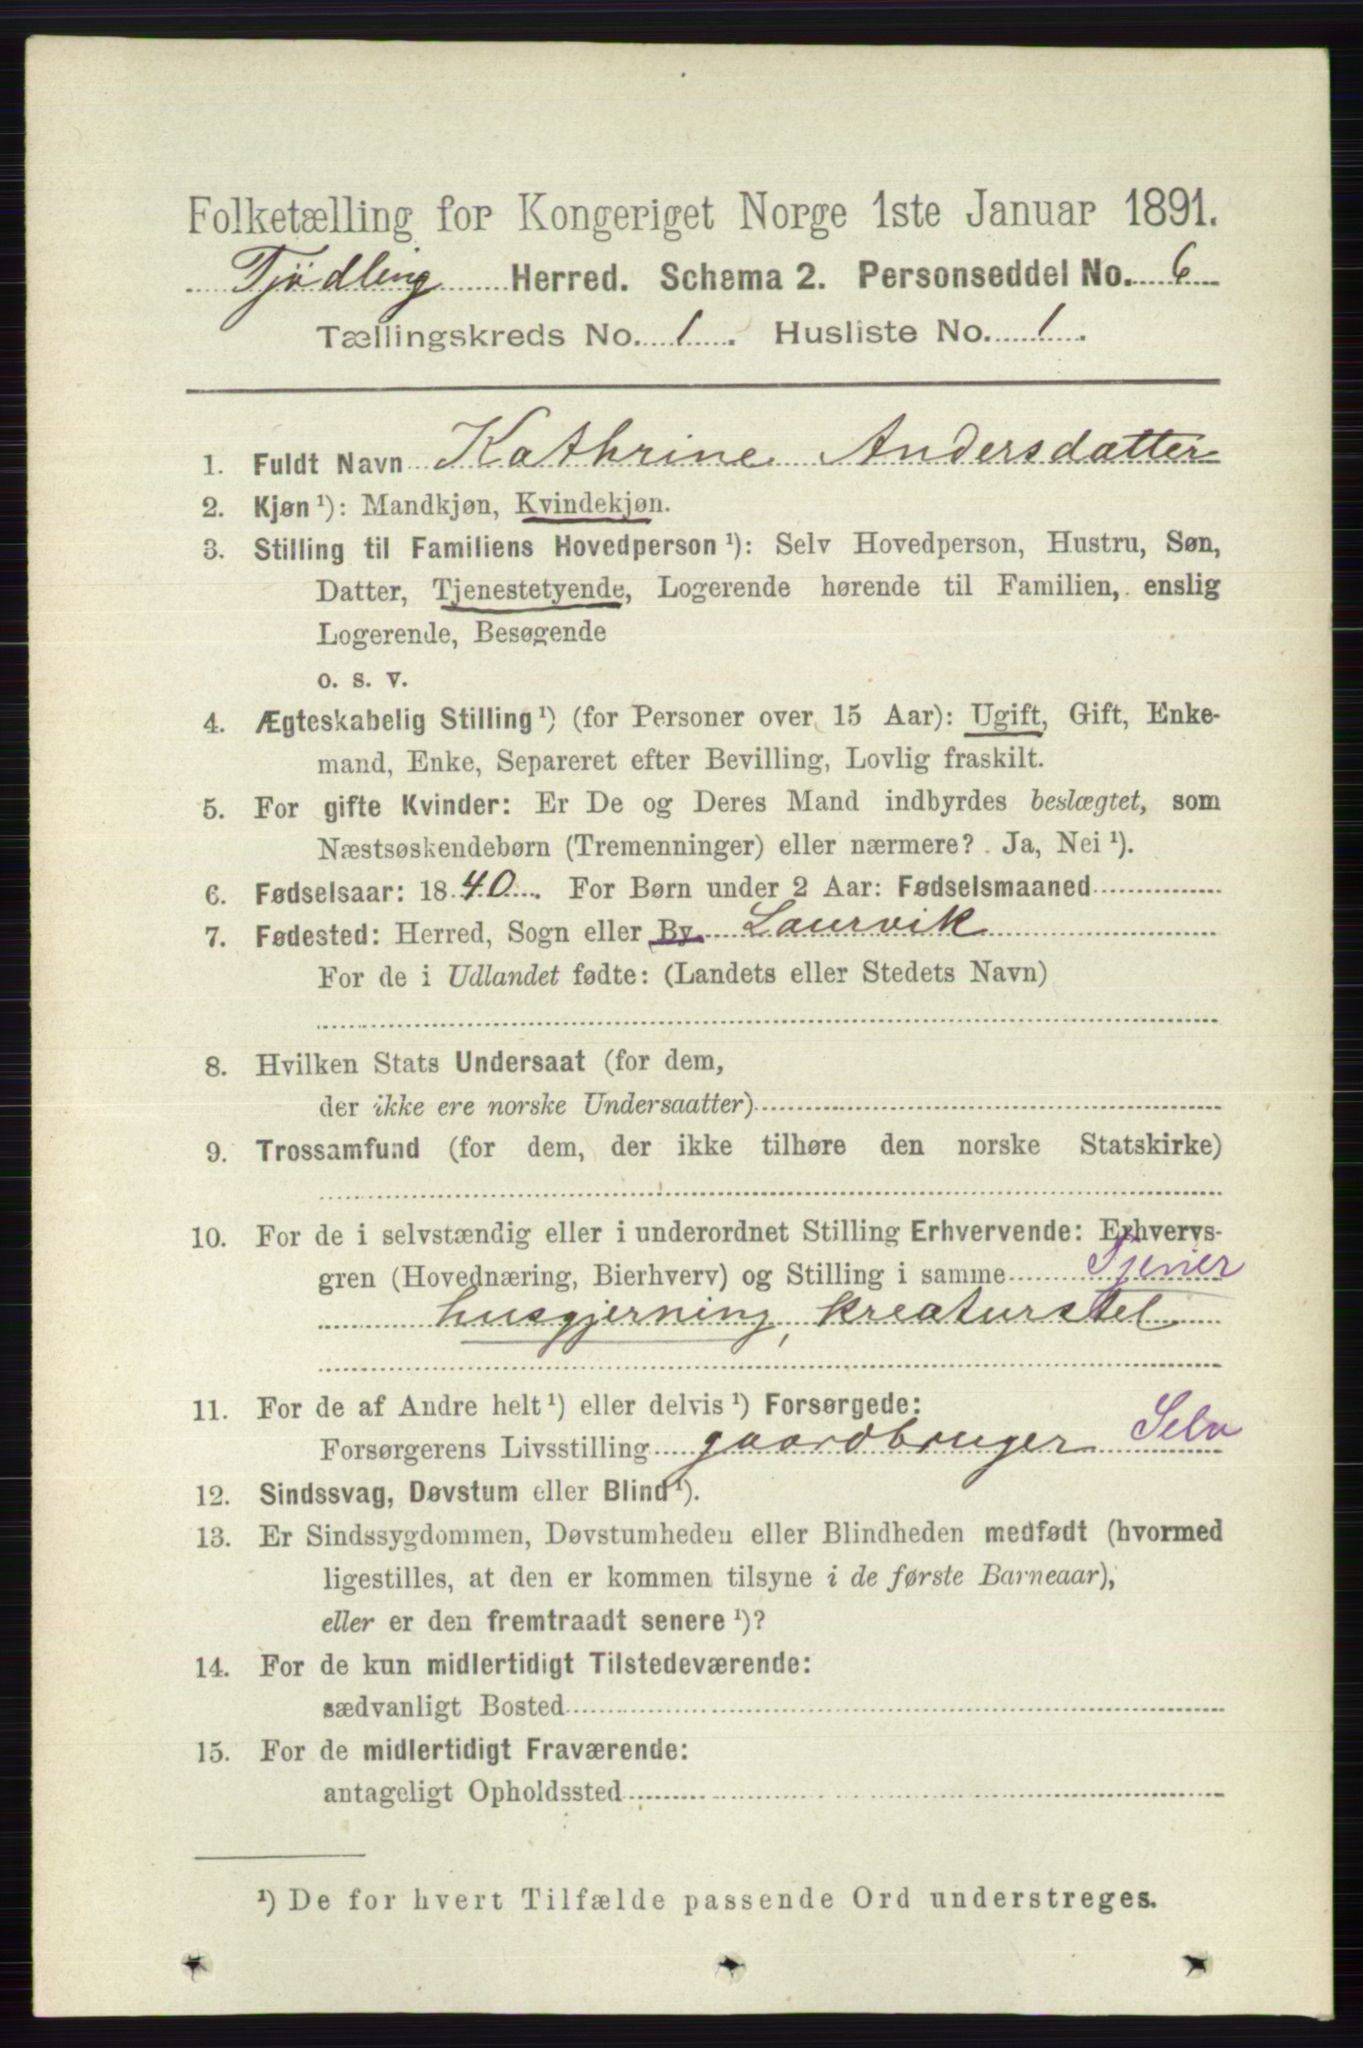 Folketælling for Kongeriget Norge 1ste Januar 1891.
Tjødling Herred. Schema 2. Personseddel No. 6
Tællingskreds No. 1. Husliste No. 1.
1. Fuldt Navn Kathrine Andersdatter
2. Kjøn ¹): Mandkjøn, Kvindekjøn.
3. Stilling til Familiens Hovedperson ¹): Selv Hovedperson, Hustru, Søn,
Datter, Tjenestetyende, Logerende hørende til Familien, enslig
Logerende, Besøgende
o. s. v.
4. Ægteskabelig Stilling ¹) (for Personer over 15 Aar): Ugift, Gift, Enke-
mand, Enke, Separeret efter Bevilling, Lovlig fraskilt.
5. For gifte Kvinder: Er De og Deres Mand indbyrdes beslægtet, som
Næstsøskendebørn (Tremenninger) eller nærmere? Ja, Nei ¹).
6. Fødselsaar: 1840. For Børn under 2 Aar: Fødselsmaaned
7. Fødested: Herred, Sogn eller By Laurvik
For de i Udlandet fødte: (Landets eller Stedets Navn)
8. Hvilken Stats Undersaat (for dem,
der ikke ere norske Undersaatter)
9. Trossamfund (for dem, der ikke tilhøre den norske Statskirke)
10. For de i selvstændig eller i underordnet Stilling Erhvervende: Erhvervs-
gren (Hovednæring, Bierhverv) og Stilling i samme Tjener
husgjerning, kreaturstel
11. For de af Andre helt ¹) eller delvis ¹) Forsørgede:
Forsørgerens Livsstilling gaardbruger Selv
12. Sindssvag, Døvstum eller Blind ¹).
13. Er Sindssygdommen, Døvstumheden eller Blindheden medfødt (hvormed
ligestilles, at den er kommen tilsyne i de første Barneaar),
eller er den fremtraadt senere ¹)?
14. For de kun midlertidigt Tilstedeværende:
sædvanligt Bosted
15. For de midlertidigt Fraværende:
antageligt Opholdssted
¹) De for hvert Tilfælde passende Ord understreges.